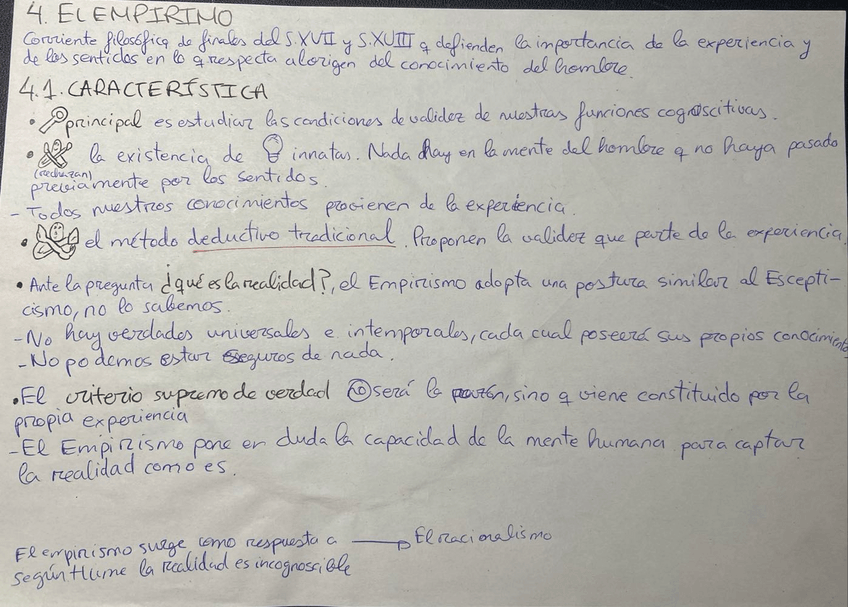 4. EL EMPIRIMO
Corriente filosófica de finales del S.XVII y S.XVIII q defienden la importancia de la experiencia y
de los sentidos en lo q respecta al origen del conocimiento del hombre.
4.1. CARACTERÍSTICA
• principal es estudiar las condiciones de validez de nuestras funciones cognoscitivas.
• la existencia de innatas. Nada hay en la mente del hombre q no haya pasado
(rechazan)
previamente por los sentidos.
- Todos nuestros conocimientos provienen de la experiencia.
• el método deductivo tradicional. Proponen la validez que parte de la experiencia.
• Ante la pregunta ¿qué es la realidad?, el Empirismo adopta una postura similar al Escepti-
cismo, no lo sabemos.
- No hay verdades universales e intemporales, cada cual poseerá sus propios conocimientos
- No podemos estar seguros de nada.
• El criterio supremo de verdad NO será la razón, sino q viene constituido por la
propia experiencia
- El Empirismo pone en duda la capacidad de la mente humana para captar
la realidad como es.
El empirismo surge como respuesta a → El racionalismo
según Hume la realidad es incognoscible